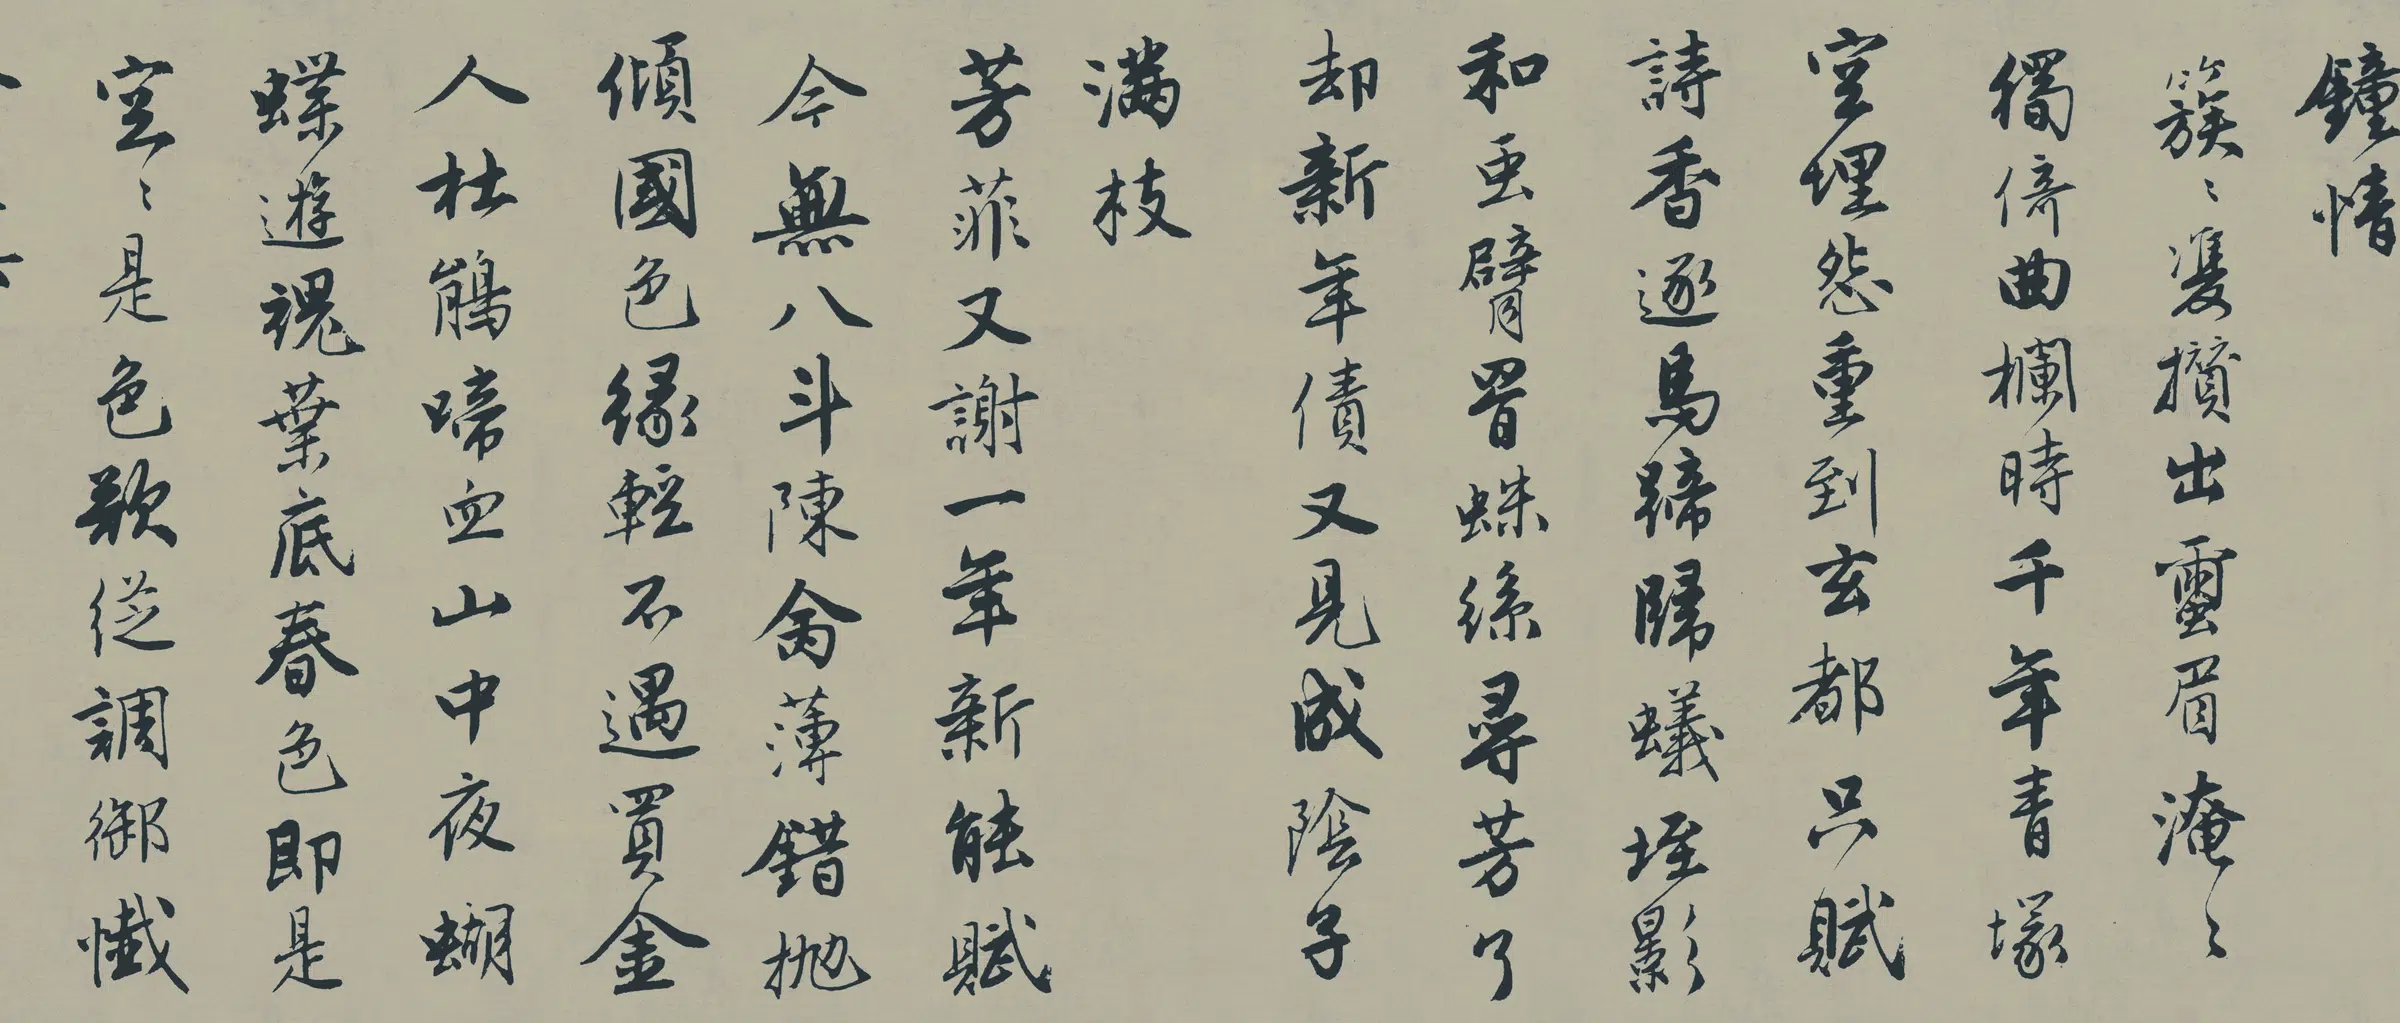 鐘情
簇〻雙攢出蠒眉淹〻
獨倚曲欄時千年青塚
空埋怨重到玄都只賦
詩香逐馬蹄歸蟻垤影
和虫臂罥蛛絲尋芳了
却新年債又見成陰子
滿枝
芳菲又謝一年新能賦
今無八斗陳命薄錯抛
傾國色緣輕不遇買金
人杜鵑啼血山中夜蝴
蝶遊魂葉底春色即是
空〻是色歌從調御懺